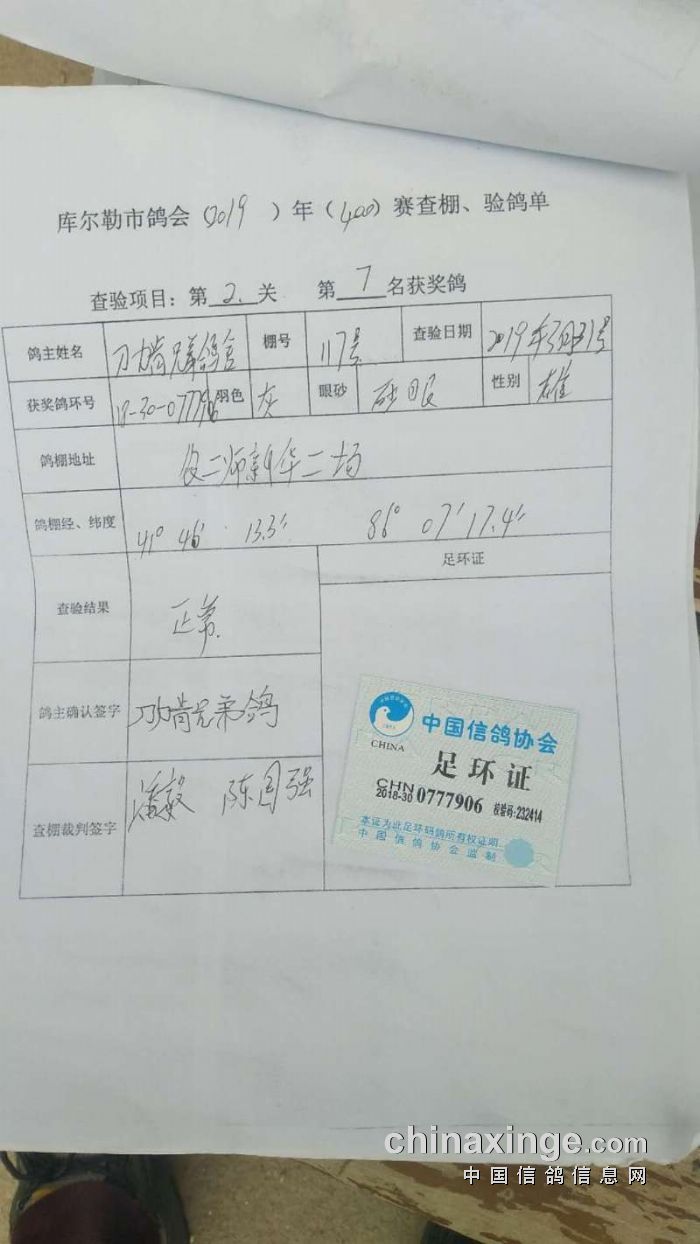 库尔勒市鸽会（2019）年（400）赛查棚、验鸽单
查验项目：第2.关 第7名获奖鸽
鸽主姓名 兄弟鸽舍 棚号 117号 查验日期 2019年
获奖鸽环号 羽色 灰 眼砂 砂眼 性别 雄
鸽棚地址 二师新华二场
鸽棚经、纬度 41° 46′ 13.3″ 86° 07′ 17.4″
查验结果 正常
足环证
鸽主确认签字 兄弟鸽
查棚裁判签字 潘毅 陈国强
中国信鸽协会
CHINA
足环证
CHN
2018-30 0777906 校验码:232414
本证为此足环码鸽所有权证明
中国信鸽协会监制
chinaxinge.com
中国信鸽信息网